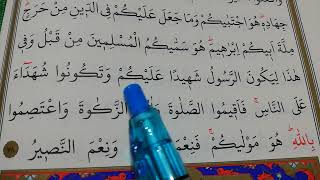 جِهَادِه۪ۜ هُوَ اجْتَبٰيكُمْ وَمَا جَعَلَ عَلَيْكُمْ فِى الدّ۪ينِ مِنْ حَرَجٍۜ
مِلَّةَ اَب۪يكُمْ اِبْرٰه۪يمَۜ هُوَ سَمّٰيكُمُ الْمُسْلِم۪ينَ مِنْ قَبْلُ وَف۪ى
هٰذَا لِيَكُونَ الرَّسُولُ شَه۪يدًا عَلَيْكُمْ وَتَكُونُوا شُهَدَٓاءَ
عَلَى النَّاسِۚ فَاَق۪يمُوا الصَّلٰوةَ الزَّكٰوةَ وَاعْتَصِمُوا
بِاللّٰهِۜ هُوَ مَوْلٰيكُمْۚ فَنِعْمَ وَنِعْمَ النَّص۪يرُ